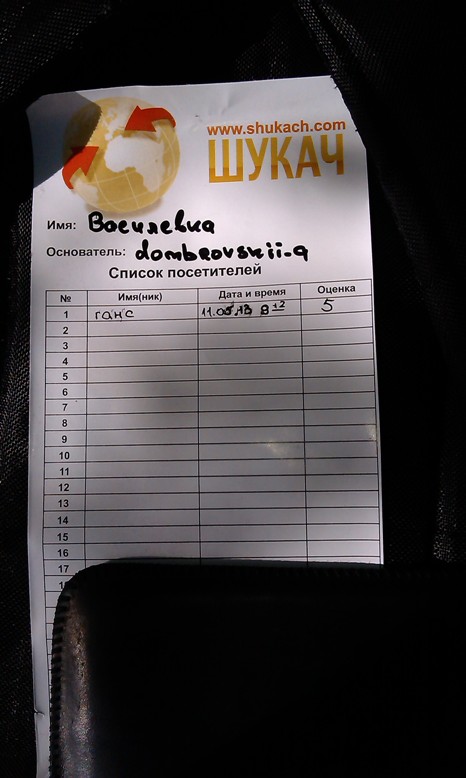 www.shukach.com
ШУКАЧ
Имя: Василевка
Основатель: dombrovskii-a
Список посетителей
№ Имя(ник) Дата и время Оценка
1 ганс 11.05.13 8 12 5
2
3
4
5
6
7
8
9
10
11
12
13
14
15
16
17